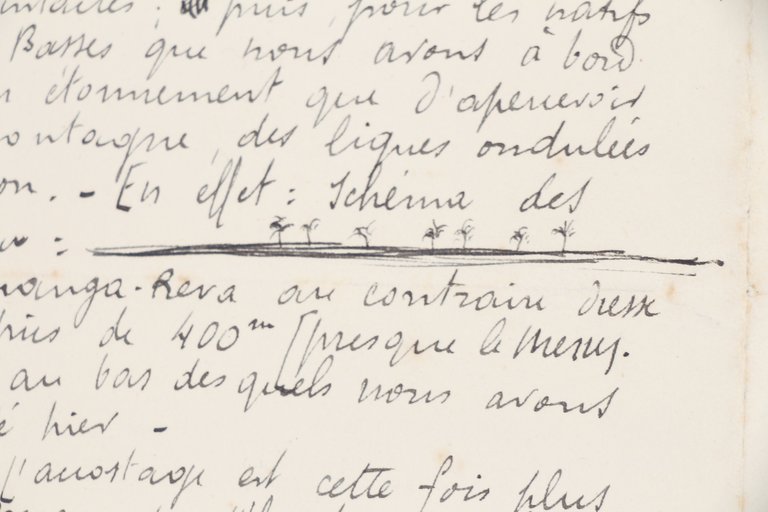 puis, pour les natifs
Basses que nous avons à bord
étonnement que d'apercevoir
ontagne, des lignes ondulées
on. - En effet : Schéma des
:
anga-Reva au contraire dresse
de 400m (presque le
au bas desquels nous avons
é hier -
l'accostage est cette fois plus